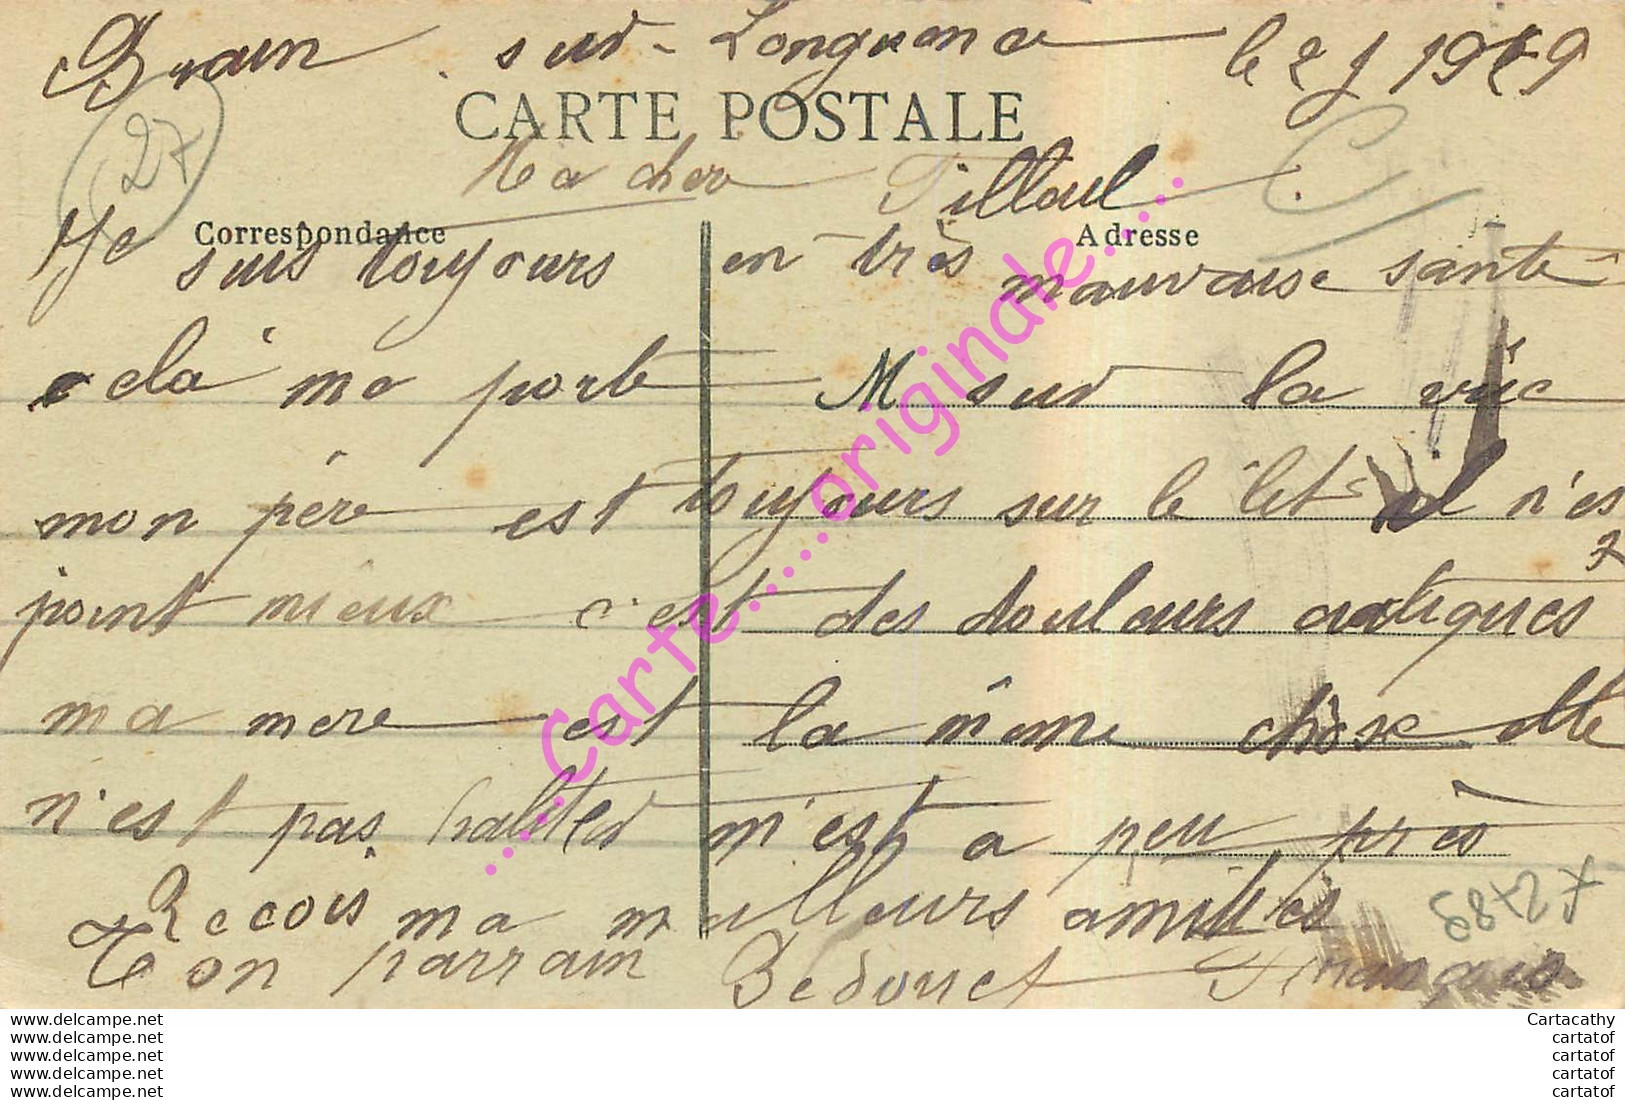 Brain sur-Longuenee le 2 j 1919
CARTE POSTALE
27
Ma cher Filleul
Correspondance Adresse
Je suis toujours en très mauvaise santé
cela me porte M sur la vue
mon père est toujours sur le let il n'es
point mieux c'est des douleurs
ma mere est la même chose elle
n'est pas haliter m'est a peu près
Recois ma meilleurs amitiés
58727
Ton parrain Bedouet François
....Carte.....originale.....
www.delcampe.net Cartacathy
www.delcampe.net cartatof
www.delcampe.net cartatof
www.delcampe.net cartatof
www.delcampe.net cartatof